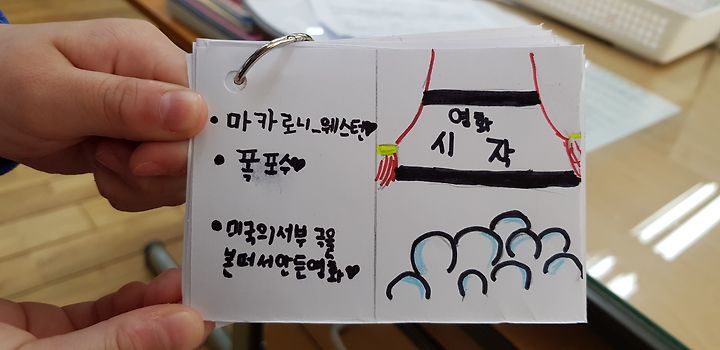 • 마카로니_웨스턴♥
• 폭포수♥
• 미국의서부 극을
본떠서만든영화♥
영화
시작